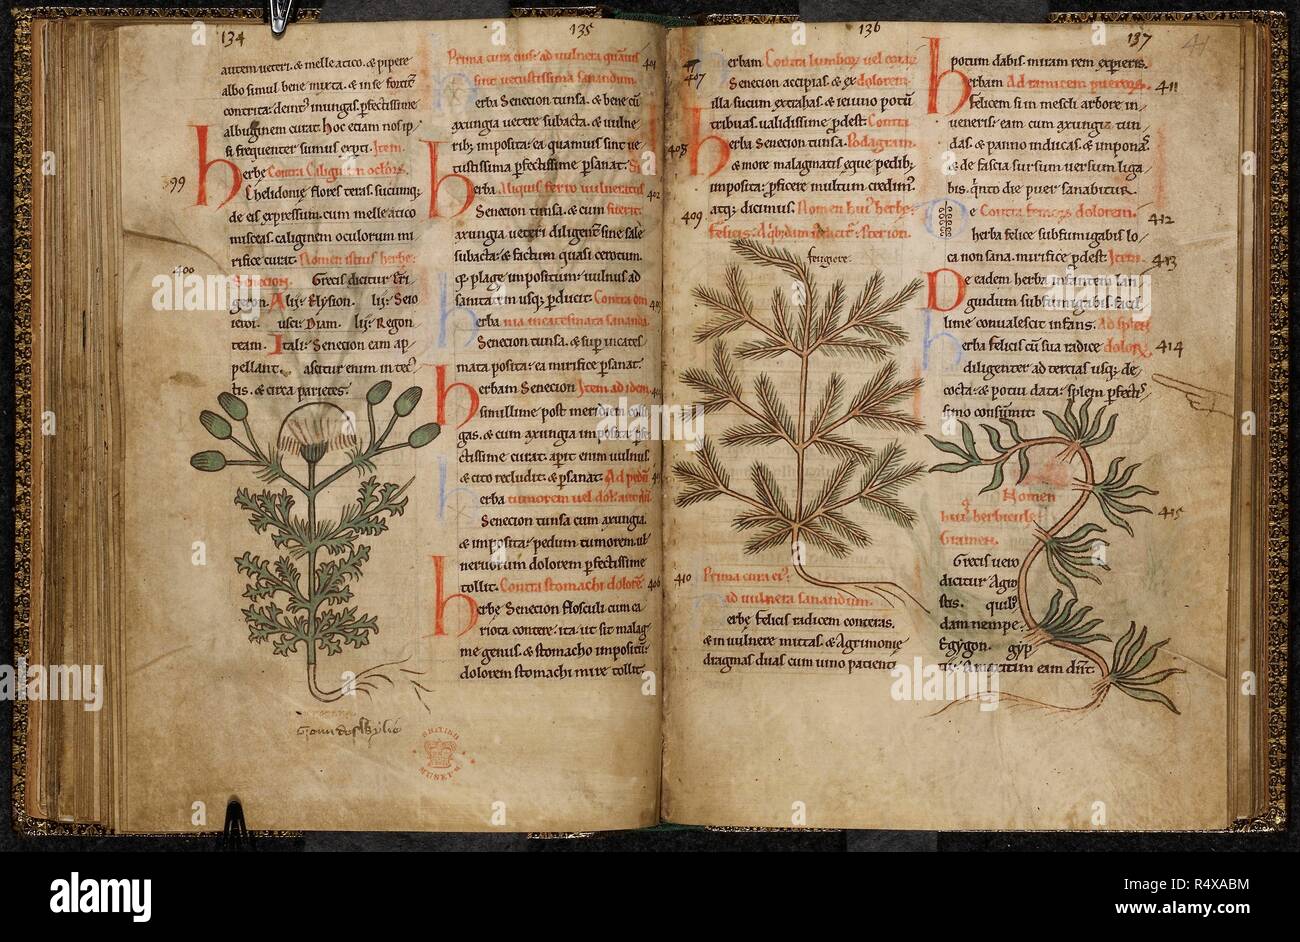 134
autem ueteri. & melle atico. & pipere
albo simul bene mixta. & in se fortit̄
contrita: deinc̄ inungas. p̄fectissime
albuginem curat. hoc etiam nos ip
si frequenter sumus exp̄ti. Item.
herbe Contra Caliginem oculorʒ
399
Chelidonie flores teras. sucumq;
de eis expressum. cum melle atico
misceas. caliginem oculorum mi
rifice curat. Nomen istius herbe:
400
Senecion. Greci dicitur Eri
geron. Alij: Elysion. lij:
usci: Diam. lij: Regon
team. Itali: Senecion eam ap
pellant. ascitur enim in tec
tis. & circa parietes.
135
Prima cura eius: ad uulnera quāuis
401
sint uetustissima sanandum.
erba Senecion tunsa. & bene cū
axungia uetere subacta. & uulne
rib; imposita: ea quamuis sint ue
tustissima p̄fectissime p̄sanat. Si
herba Aliquis ferro uulneratus
402
Senecion tunsa. & cum fuerit.
axungia ueteri diligent̄ sine sale
subacta: & factum quasi cerotum.
q; plage impositum: uulnus ad
sanitatem usq; p̄ducit. Contra om
403
erba nia incatesimata sananda
Senecion tunsa. & sup incates
mata posita: ea mirifice p̄sanat.
herbam Senecion Item ad idem
simillime post meridiem colli
gas. & cum axungia imposita: p̄fe
ctissime curat: aperit enim uulnus.
& cito recludit: & p̄sanat. Ad pedū
erba tumorem uel dolorem
Senecion tunsa cum axungia.
& imposita: pedum tumorem uel
neruorum dolorem p̄fectissime
tollit. Contra stomachi dolorē
406
herbe Senecion flosculi cum ca
riota contere: ita ut sit malag
me genus. & stomacho impositū:
dolorem stomachi mire tollit.
BRITISH MUSEUM
136
407
erbam Contra lumborʒ uel
Senecion accipias. & ex dolorem.
illa sucum extrahas. & ieiuno potū
tribuas. ualidissime p̄dest. Contra
408
herba Senecion tunsa. Podagram.
& more malagmatis eque pedib;
imposita: p̄ficere multum credim̄.
atq; dicimus. Nomen hui; herbe:
409
felicis.
feugiere
410
Prima cura ei;:
ad uulnera sananduum.
erbe felicis radicem conteras.
& in uulnere mittas. & Agrimonie
dragmas duas cum uino pacienti
137
41
potum dabis. miram rem exp̄ieris.
411
herbam Ad ramicem puerorʒ.
felicem si in mescli arbore in
ueneris: eam cum axungia tun
das. & panno inducas. & imponas.
& de fascia sursum uersum liga
bis. q̄nto die puer sanabitur.
412
e Contra dolorem.
herba felice subfumigabis lo
ca non sana. mirifice p̄dest. Item.
413
De eadem herba infantem lan
guidum subfumigabis. facil
lime conualescit infans. Ad splen
herba felicis cū sua radice dolorʒ
414
diligenter ad tercias usq; de
cocta: & potui data: splem p̄fectis
simo consūmit.
Nomen
hui; herbicule:
415
Gramen.
Greci uero
dicitur Agro
stis. quib;
dam nempe:
Egygon. gyp
tij: Amaxitum eam dn̄t:
alamy
Image ID: R4XABM
www.alamy.com